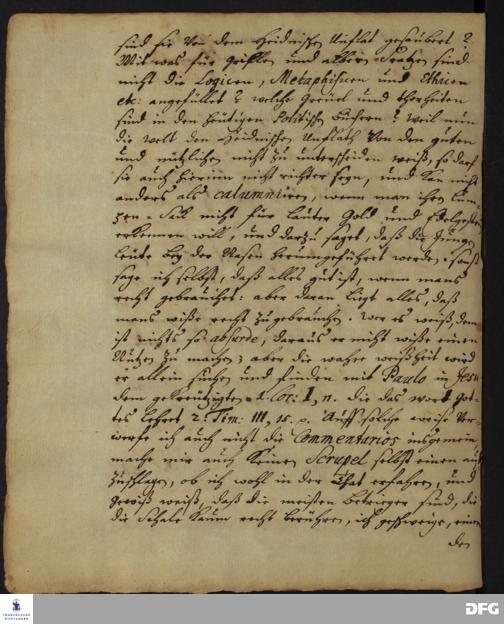 sind sie von dem Heidnischen Unflat gesäubert?
Mit was für Grillen und albern Fratzen sind
nicht die Logicen, Metaphysicen und Ethicen
etc: angefüllet? welche Greüel und thorheiten
sind in den heütigen Politischen büchern? weil nun
die welt den Heidnischen Unflath von dem guten
und nützlichen nicht zu unterscheiden weiß, so darf
sie auch hierinn nicht richter seyn, und kan nicht
anders als calumniiren, wenn man ihren Lum-
pen-Sack nicht für lauter Gold und Edelgestein
erkennen will, und darzu saget, daß die Jungen
leüte bey der Nasen herumgeführet werden. sonst
sage ich selbst, daß alles gut ist, wenn mans
recht gebrauchet: aber daran liegt alles, daß
mans wiße recht zu gebrauchen. Wer es weiß, dem
ist nichts so absurde, daraus er nicht wiße einen
Nutzen zu machen; aber die wahre weißheit wird
er allein suchen und finden mit Paulo in Jesu
dem gekreutzigten 1. Cor: I, n. die das wort Got-
tes lehret 2. Tim: III, 15. Auff solche weise Ver-
werfe ich auch nicht die Commentarios insgemein,
mache mir auch keinen Scrupel selbst einen auf
zuschlagen, ob ich wohl in der That erfahren, und
gewiß weiß, daß die meisten betrieger sind, die
die Schale kaum recht berühren, ich geschweige, einen
den
FRANCKESCHE STIFTUNGEN
DFG